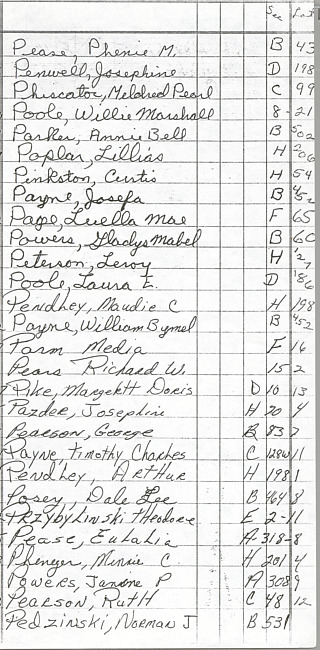 Sec Lot
Pease, Phenie M. B 43
Penwell, Josephine D 198
Phiscator, Mildred Pearl C 99
Poole, Willie Marshall 8-21
Parker, Annie Bell B 502
Poplar, Lillias H 206
Pinkston, Curtis H 54
Payne, Josefa B 452
Page, Luella Mae F 65
Powers, Gladys Mabel B 60
Peterson, Leroy H
Poole, Laura E. D
Pendley, Maudie C H 198
Payne, William Bymel B 452
Parm Media F 16
Pears Richard W. 15 2
Pike, Margett Doris D 10 13
Pazder, Josephine H 20 4
Pearson, George B 83 7
Payne, Timothy Charles C 11
Pendley, Arthur H 198 1
Posey, Dale Lee B 464 8
Przybylinski Theodore E 2-11
Pease, Eulalia A-318-8
Pheneger, Minnie C. H 201 4
Powers, Janine P A 308 9
Pearson, Ruth C 48 12
Pedzinski, Norman J B 531